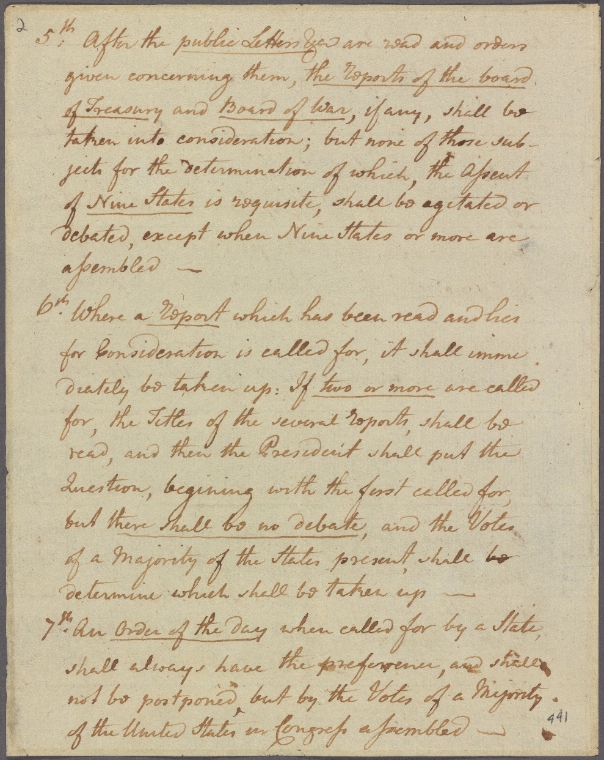 2
5th. After the public Letters &ca are read and orders
given concerning them, the Reports of the board
of Treasury and Board of War, if any, shall be
taken into consideration; but none of those sub-
jects for the determination of which, the Assent
of Nine States is requisite, shall be agitated or
debated, except when Nine States or more are
assembled —
6th. Where a Report which has been read and lies
for Consideration is called for, it shall imme
diately be taken up: If two or more are called
for, the Titles of the several reports, shall be
read, and then the President shall put the
Question, begining with the first called for,
but there shall be no debate, and the Votes
of a Majority of the States present, shall be
determine which shall be taken up —
7th. An Order of the day when called for by a State,
shall always have the preference, and shall
not be postponed, but by the Votes of a Majority
of the United States in Congress assembled —
441